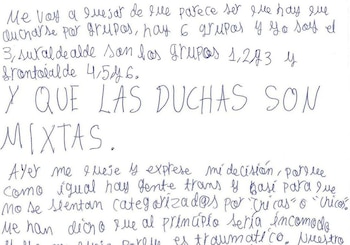 Me voy a quejar de que parece ser que hay que
ducharse por grupos, hay 6 grupos y yo soy el
3, su tal de alde son los grupos 1,2 y 3 y
frontal de 4,5 y 6.
Y QUE LAS DUCHAS SON
MIXTAS.
Ayer me queje y exprese mi decisión, porque
como igual hay gente trans y pasi para que
no se sientan categorizad@s por "chicas" o "chicos".
Me han dicho que al principio sería incomodo
porque es traumático. Nuestro